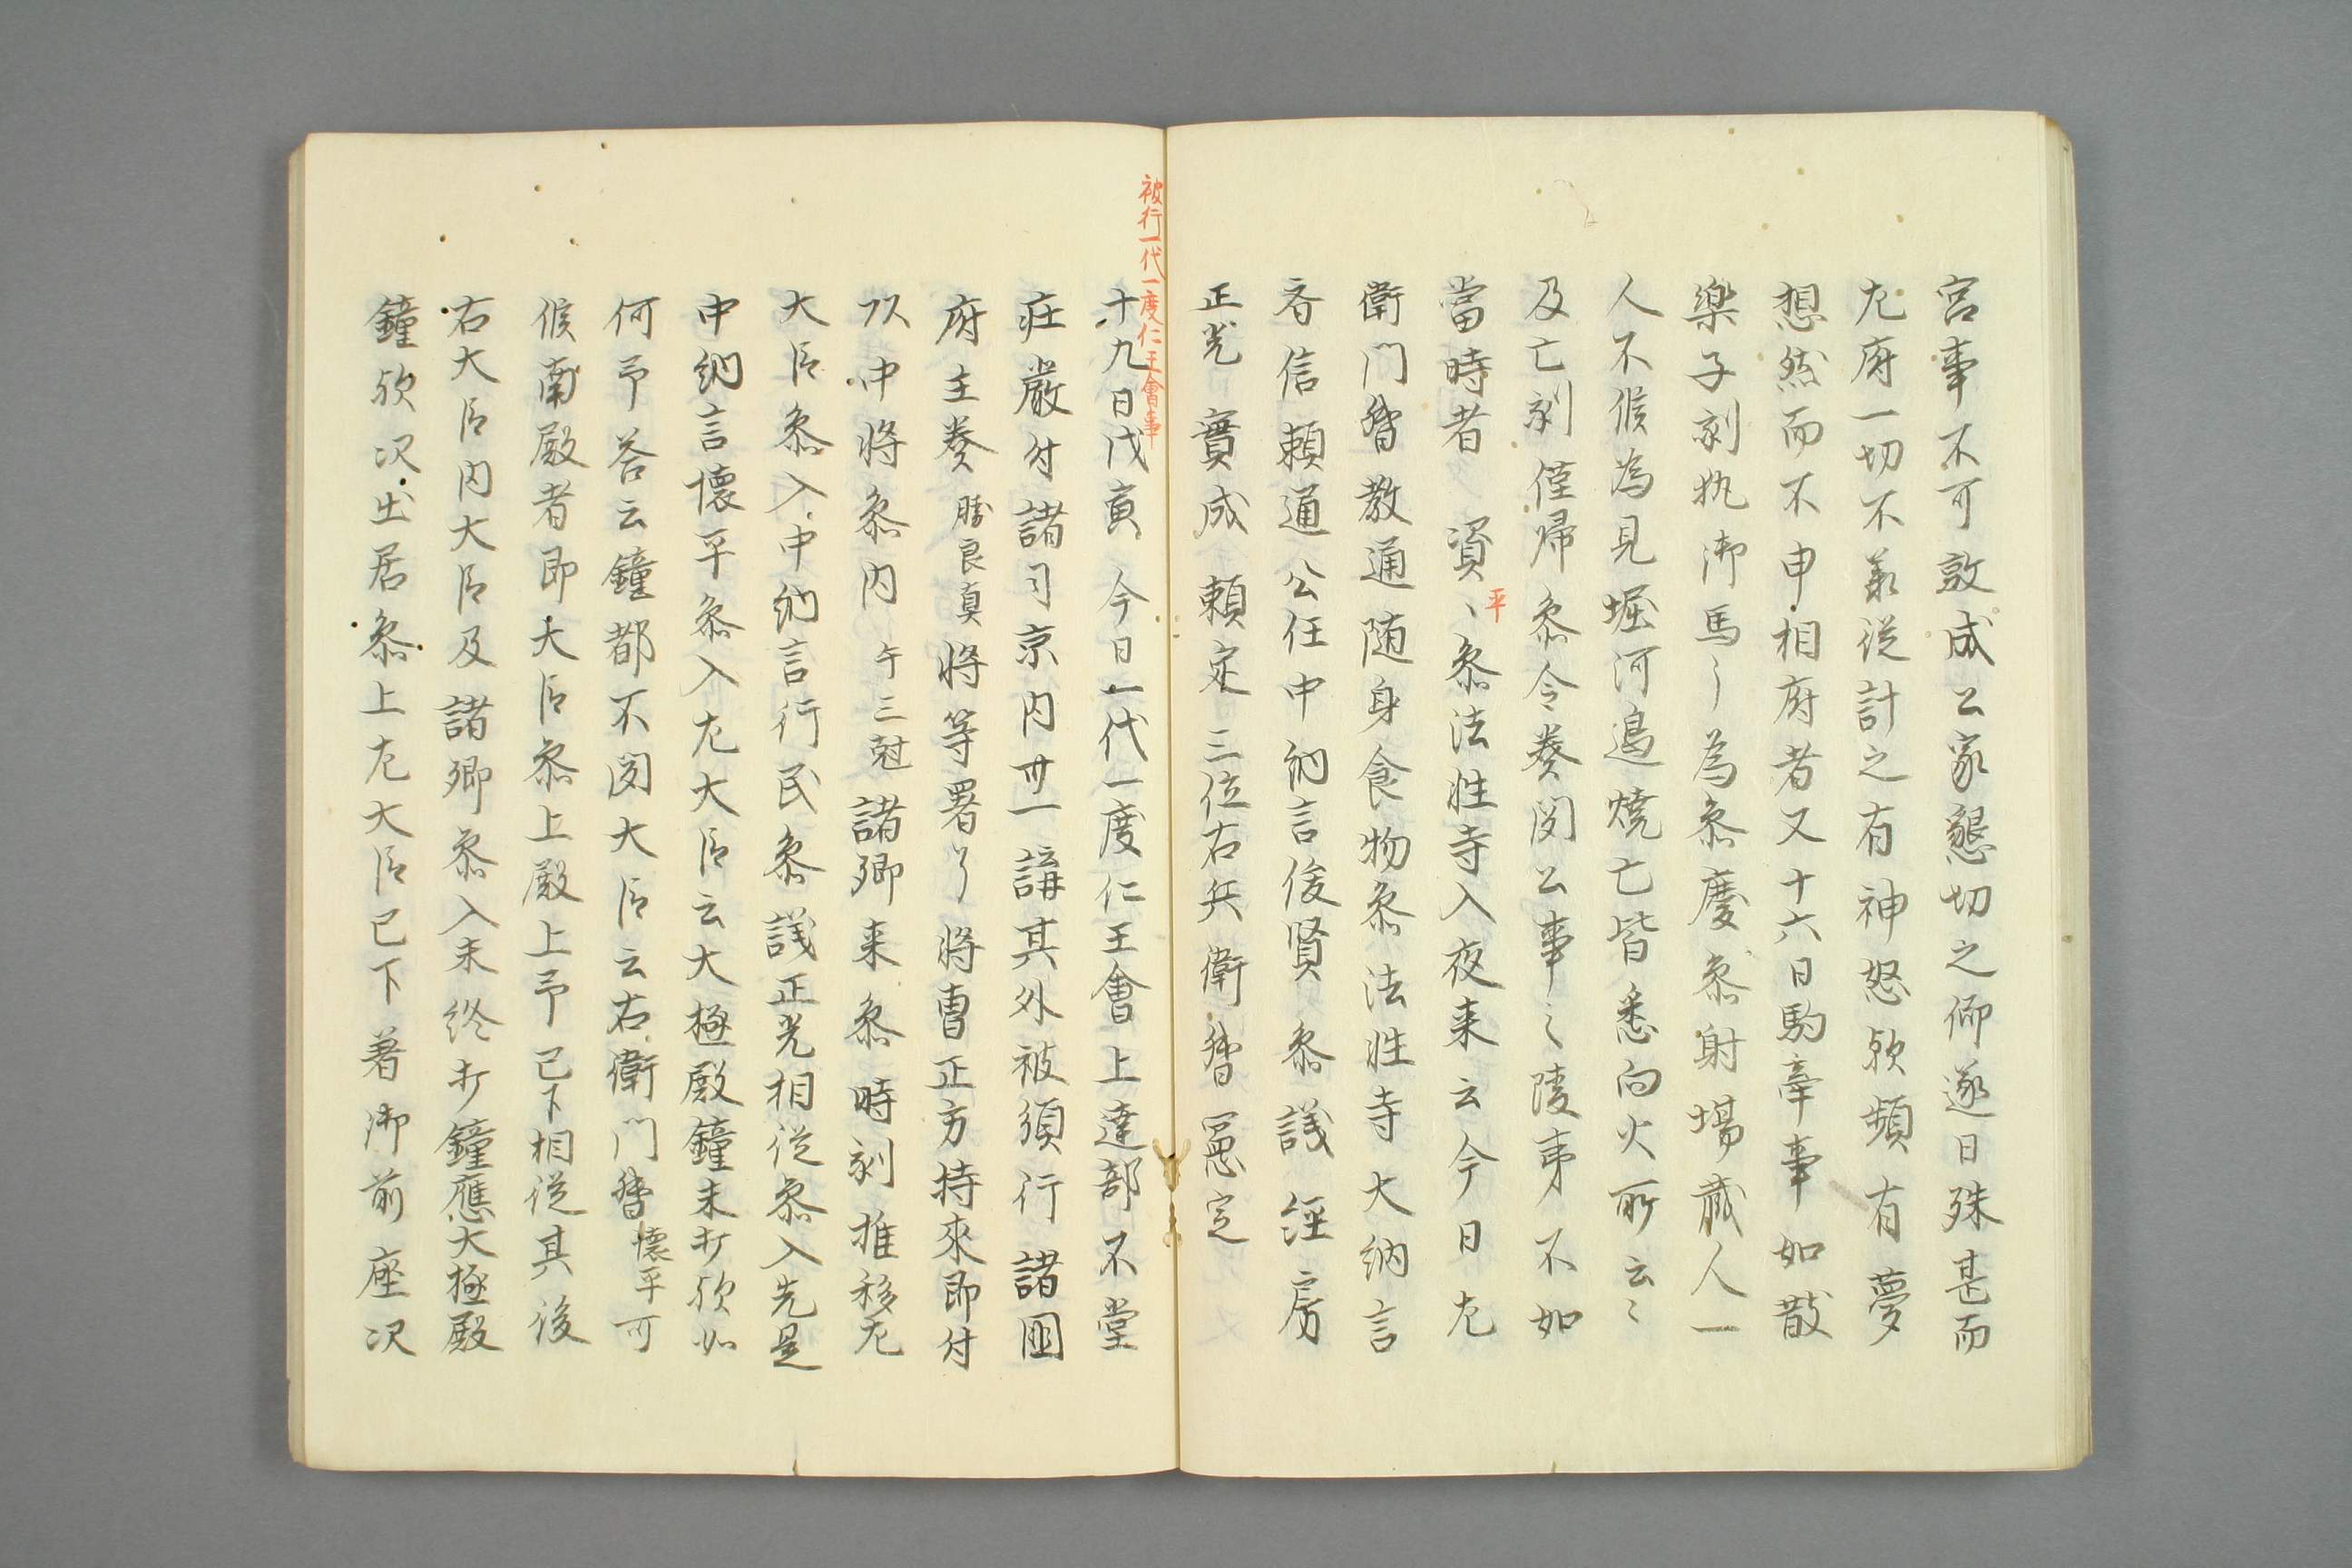 宮事不可敦成公家懇切之仰逐日殊甚而
左府一切不兼従計之有神怒欤頻有夢
想然而不申相府者又十六日駒牽事如散
楽子剋執御馬〻為参慶参射場蔵人一
人不候為見堀河邉焼亡皆悉向火所云〻
及亡剋僅帰参令奏聞公事〻陵夷不如
當時者 資〻参法性寺入夜来云今日左
平
衛門督教通随身食物参法性寺大納言
斉信頼通公任中納言俊賢参議経房
正光實成頼定三位右兵衛督憲定
被行一代一度仁王會事
十九日戊寅今日一代一度仁王會上達部不堂
荘厳付諸司京内卅一講其外被須行諸國
府主奏勝良真将等署了将曺正方持來即付
以中将参内午三尅諸卿来参時剋推移左
大臣参入中納言行民参議正光相従参入先是
中納言懐平参入左大臣云大極殿鐘未打欤如
何予答云鐘都不聞大臣云右衛門督懐平可
候南殿者即大臣参上殿上予已下相従其後
右大臣内大臣及諸卿参入未終打鐘應大極殿
鐘欤次出居参上左大臣已下著御前座次